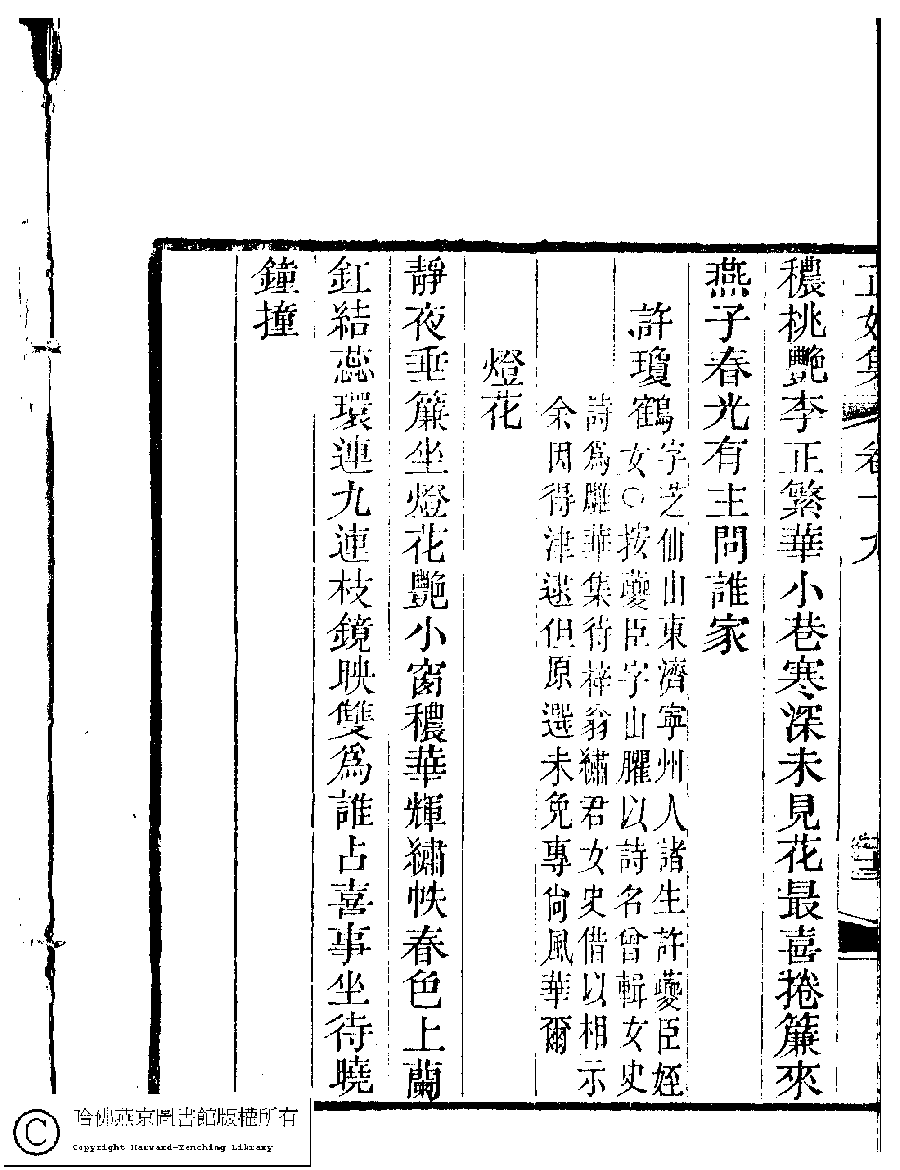 集 卷十九
穠桃艷李正繁華小巷寒深未見花最喜捲簾來
燕子春光有主問誰家
許瓊鶴
字芝仙山東濟寧州人諸生許夔臣姪
女○按夔臣字山臞以詩名曾輯女史
詩為雕華集待梓翁繡君女史借以相示
余因得津逮但原選未免專尙風華爾
燈花
靜夜垂簾坐燈花艷小窗穠華輝繡帙春色上蘭
釭結蕊環連九連枝鏡映雙為誰占喜事坐待曉
鐘撞
哈佛燕京圖書館版權所有
Copyright Harvard-Yenching Library